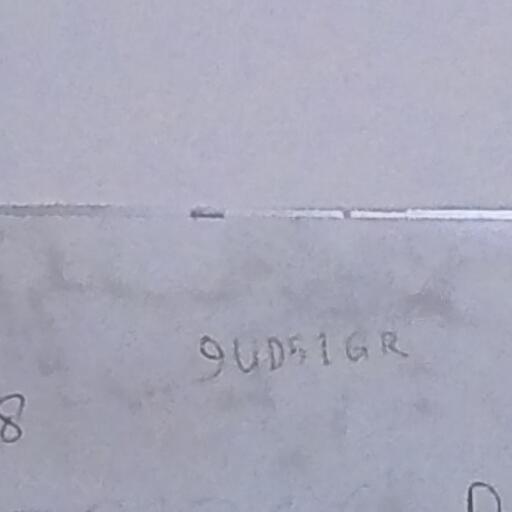 9UD51GR
8